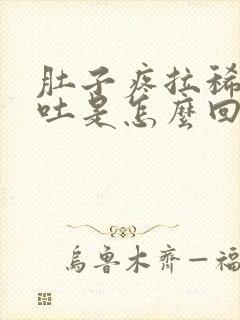 肚子疼拉稀
吐是怎麼回
烏魯木齊—福